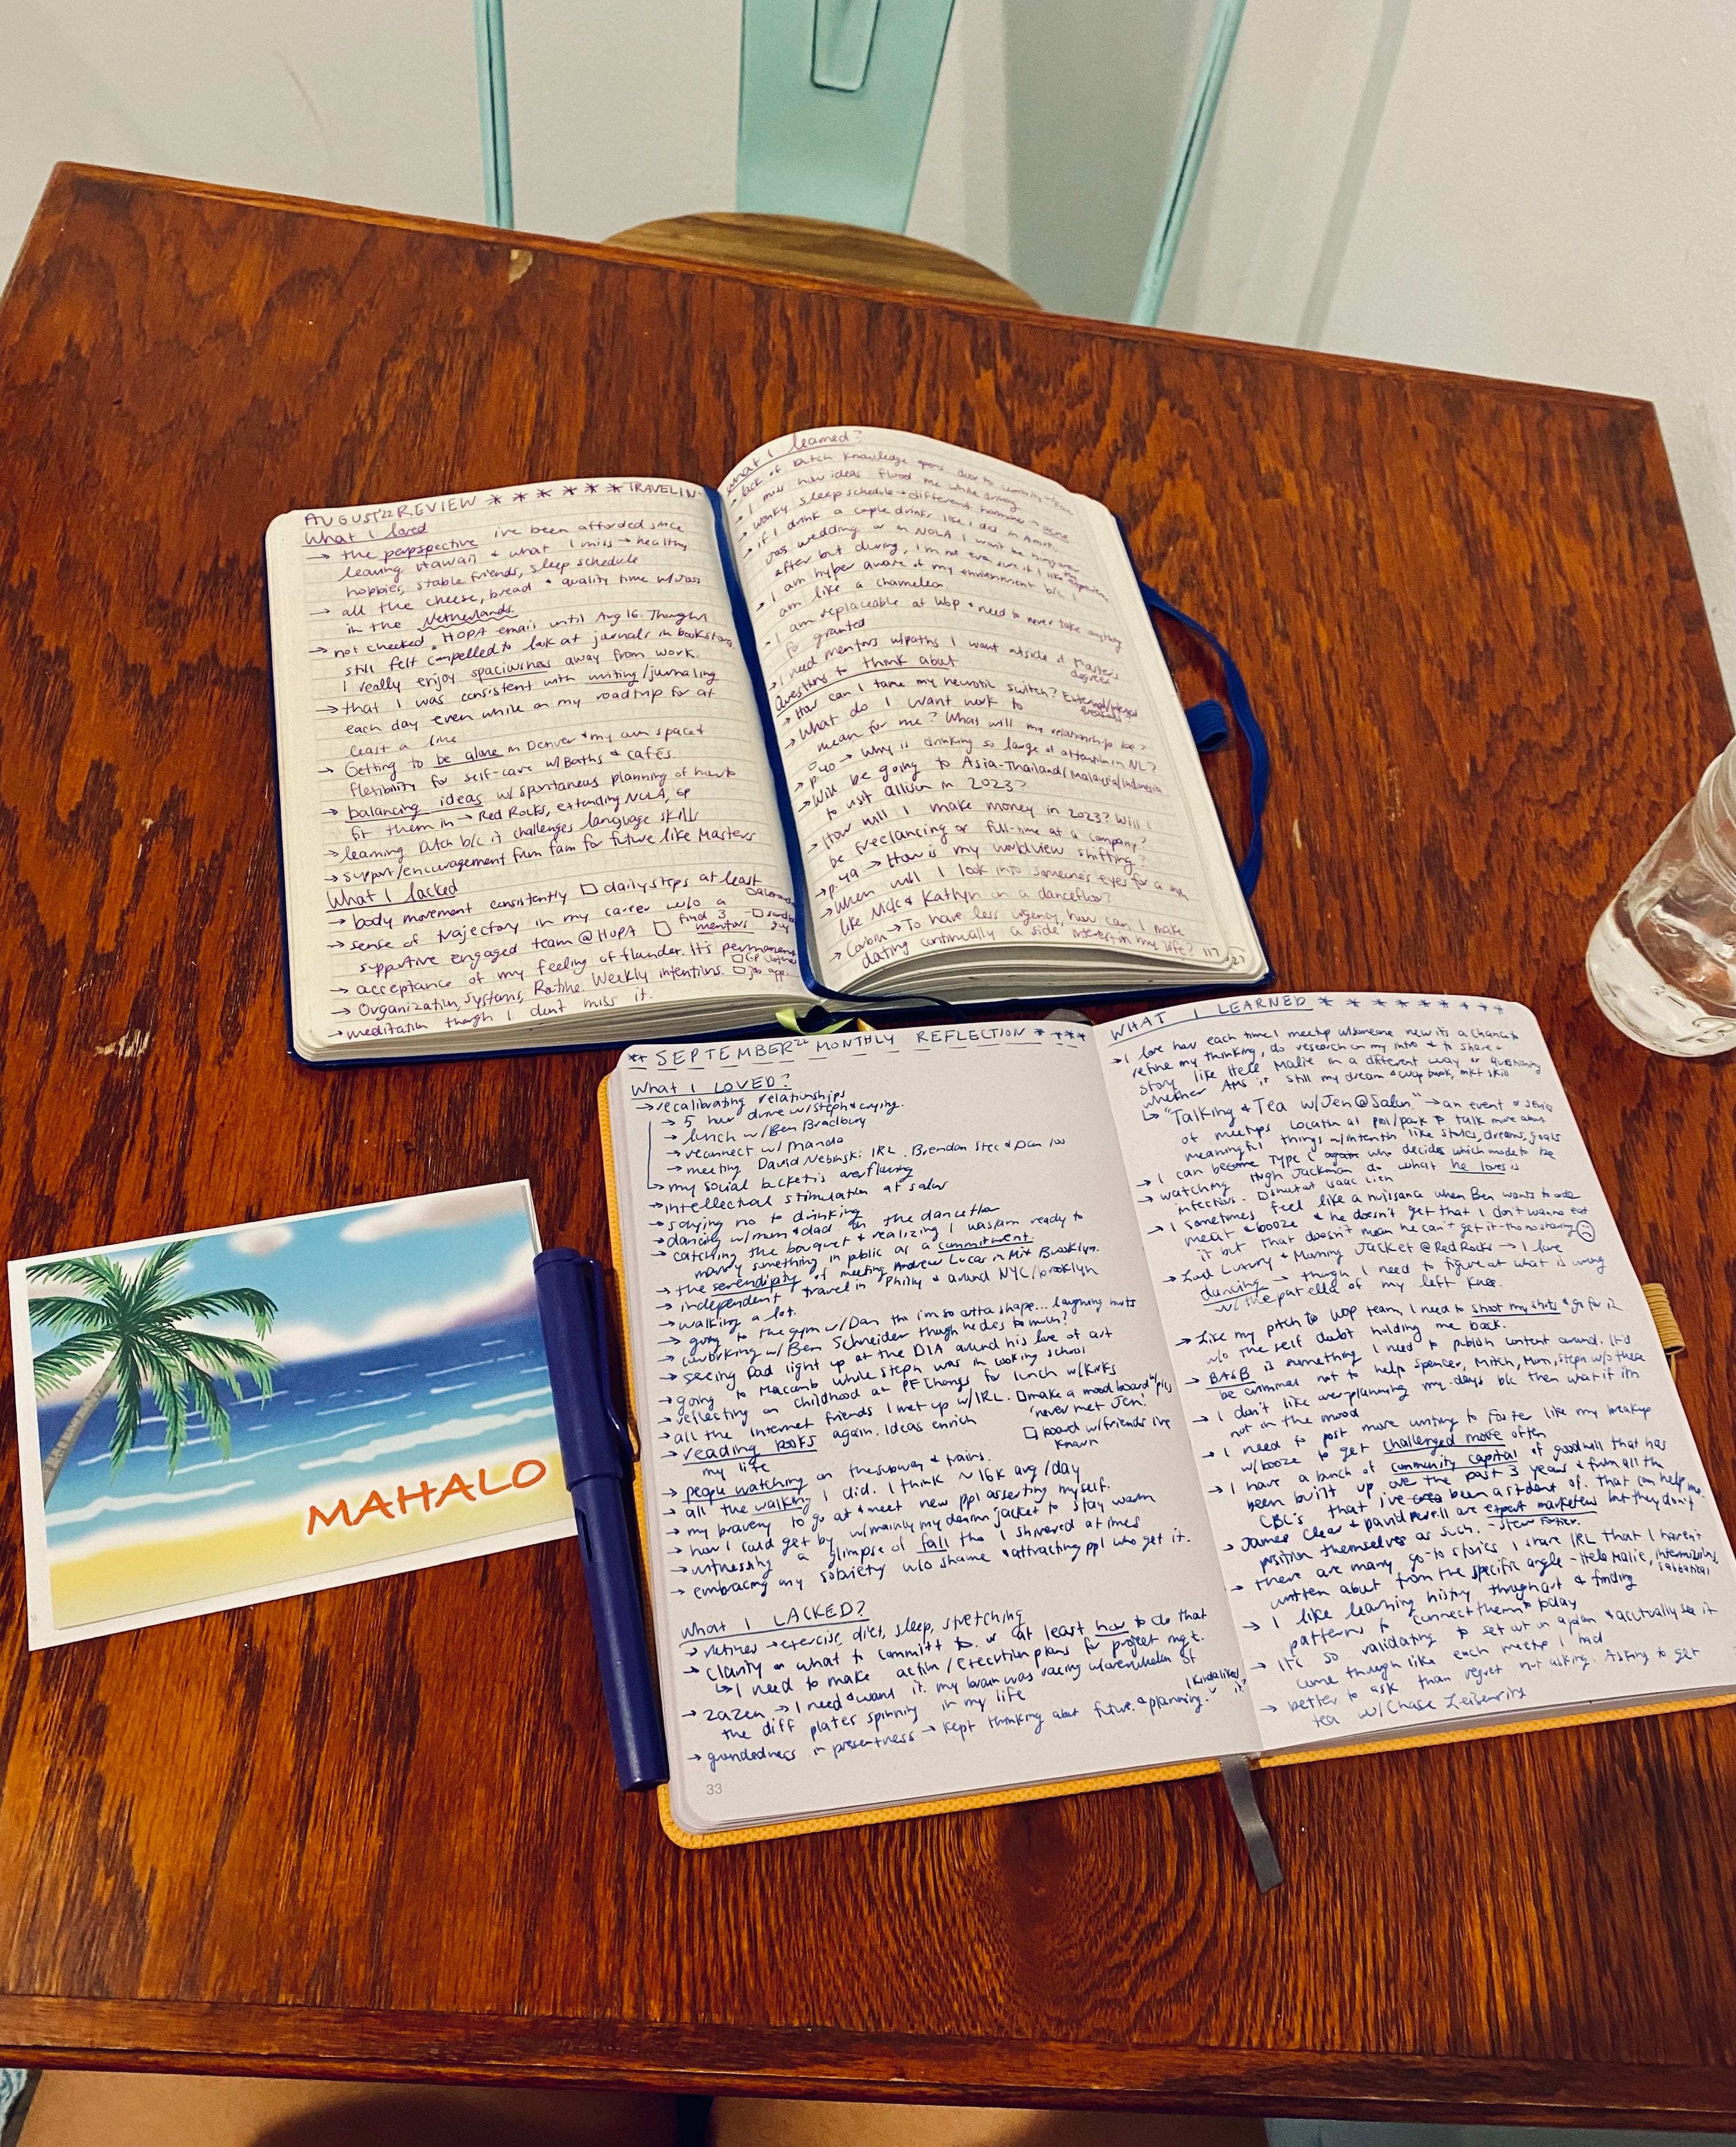 AUGUST '22 REVIEW * * * * * * * TRAVELIN
What I loved
→ the perpspective i've been afforded since
leaving Hawaii & what I miss → healthy
hobbies, stable friends, sleep schedule
→ all the cheese, bread & quality time w/Jass
in the Netherlands
→ not checked HOPA email until Aug 16. Though I
still felt compelled to look at journals in bookstores
I really enjoy spaciousness away from work.
→ that I was consistent with writing/jurnaling
each day even while on my roadtrip for at
least a line
→ Getting to be alone in Denver & my own space &
flexibility for self-care w/Baths & cafés.
→ balancing ideas w/spontaneous planning of how to
fit them in → Red Rocks, extending NOLA, GP
→ learning Dutch b/c it challenges language skills
→ support/encouragement from fam for future like Masters
What I lacked
→ body movement consistently □ daily steps at least
→ sense of trajectory in my career w/o a
supportive engaged team @ HOPA □ find 3 mentors
→ acceptance of my feeling of flounder. It's permanent
→ Organization, Systems, Routine. Weekly intentions. □ job app.
→ meditation though I dont miss it.
What I learned?
lack of Dutch knowledge opens door to
I miss how ideas flood me while driving
wonky sleep schedule → different hormones → acne
→ if I drink a couple drinks like I did in Amst.
Jass wedding or in NOLA I won't be hungover
after but during, I'm not even sure if I like
→ I am hyper aware of my environment b/c I
am like a chameleon
→ I am replaceable at WOP & need to never take anything
for granted
→ I need mentors w/paths I want outside of Masters
degrees
Questions to think about
→ How can I tame my neurotic switch? External/internal
→ What do I want work to
mean for me? What will my relationship be?
→ p.40 → Why is drinking so large of attention in NL?
→ Will I be going to Asia-Thailand/Malaysia/Indonesia
to visit Allison in 2023?
→ How will I make money in 2023? Will I
be freelancing or full-time at a company?
→ p.49 → How is my worldview shifting?
→ When will I look into someone's eyes for a
like Nick & Kathlyn on a dancefloor?
→ Corbin → To have less urgency, how can I make
dating continually a side interest in my life? 117
127
** SEPTEMBER '22 MONTHLY REFLECTION * ***
What I LOVED?
→ recalibrating relationships
→ 5 hour drive w/steph & crying.
→ lunch w/Ben Bradbury
→ reconnect w/ Manda
→ meeting David Nebinski IRL. Brendan
→ my social bucket is overflowing
→ intellectual stimulation at salon
→ saying no to drinking
→ dancing w/mum & dad on the dancefloor
→ catching the bouquet & realizing I was/am ready to
marry something in public as a commitment.
→ the serendipity of meeting Andrew Lucas in Brooklyn.
→ independent travel in Philly & around NYC/brooklyn
→ walking a lot.
→ going to the gym w/Dan tho i'm so outta shape... laughing hurts
→ coworking w/ Ben Schneider though he does to much!
→ seeing Dad light up at the DIA around his love of art
→ going to Macomb while Steph was in cooking school
→ reflecting on childhood at PF Changs for lunch w/Kirks
→ all the Internet friends I met up w/IRL. □ make a mood board w/pics
'never met Jen!'
→ reading books again. Ideas enrich
my life
□ board w/friends i've
known
→ people watching on the subway & trains.
→ all the walking I did. I think ~16k avg/day
→ my bravery to go at & meet new ppl asserting myself.
→ how I could get by w/mainly my denim jacket to stay warm
→ witnessing a glimpse of fall tho I shivered at times
→ embracing my sobriety w/o shame & attracting ppl who get it.
What I LACKED?
→ rutines → exercise, diet, sleep, stretching
→ clarity on what to committ to or at least how to do that
↳ I need to make action/execution plans for project mgt.
→ zazen → I need & want it. my brain was racing w/overwhelm of
the diff plates spinning in my life
→ groundedness in presentness → kept thinking about future & planning.
I kinda liked it
33
WHAT I LEARNED * * * * * * * * * *
→ I love how each time I meetup w/someone new its a chance to
refine my thinking, do research on my intro & to share a
story like Hele Malie in a different way or questioning
whether AMS is still my dream & WOP book, mkt skill
↳ "Talking & Tea w/Jen @ Salon" → an event or series
of meetups location at pool/park to talk more about
meaningful things w/intention like stories, dreams, goals
→ I can become Type C again who decides which mode to be
→ watching Hugh Jackman do what he loves is
infectious.
→ I sometimes feel like a nuissance when Ben wants to order
meat & booze & he doesn't get that I don't wanna eat
it but that doesn't mean he can't get it - tho no sharing ☹
→ Lord Luxury & Morning Jacket @ Red Rocks → I love
dancing → though I need to figure at what is wrong
w/ the patella of my left knee.
→ Like my pitch to WOP team, I need to shoot my shots & go for it
w/o the self doubt holding me back.
→ BASB is something I need to publish content around. It'd
be criminal not to help Spencer, Mitch, Mum, Steph w/o these
→ I don't like overplanning my days b/c then what if i'm
not in the mood
→ I need to post more writing to Foster like my breakup
w/booze to get challenged more often
→ I have a bunch of community capital of goodwill that has
been built up over the past 3 years & from all the
CBC's that i've been a student of. That can help me.
→ James Clear & David Perell are expert marketers but they don't
position themselves as such. - Stew Fortier.
→ there are many go-to stories I share IRL that I haven't
written about from the specific angle - Hele Malie, internship, sabbatical
→ I like learning history through art & finding
patterns to connect them to today
→ It's so validating to set out on a plan & acctually see it
come through like each meetup I had
→ better to ask than regret not asking. Asking to get
tea w/Chase
MAHALO